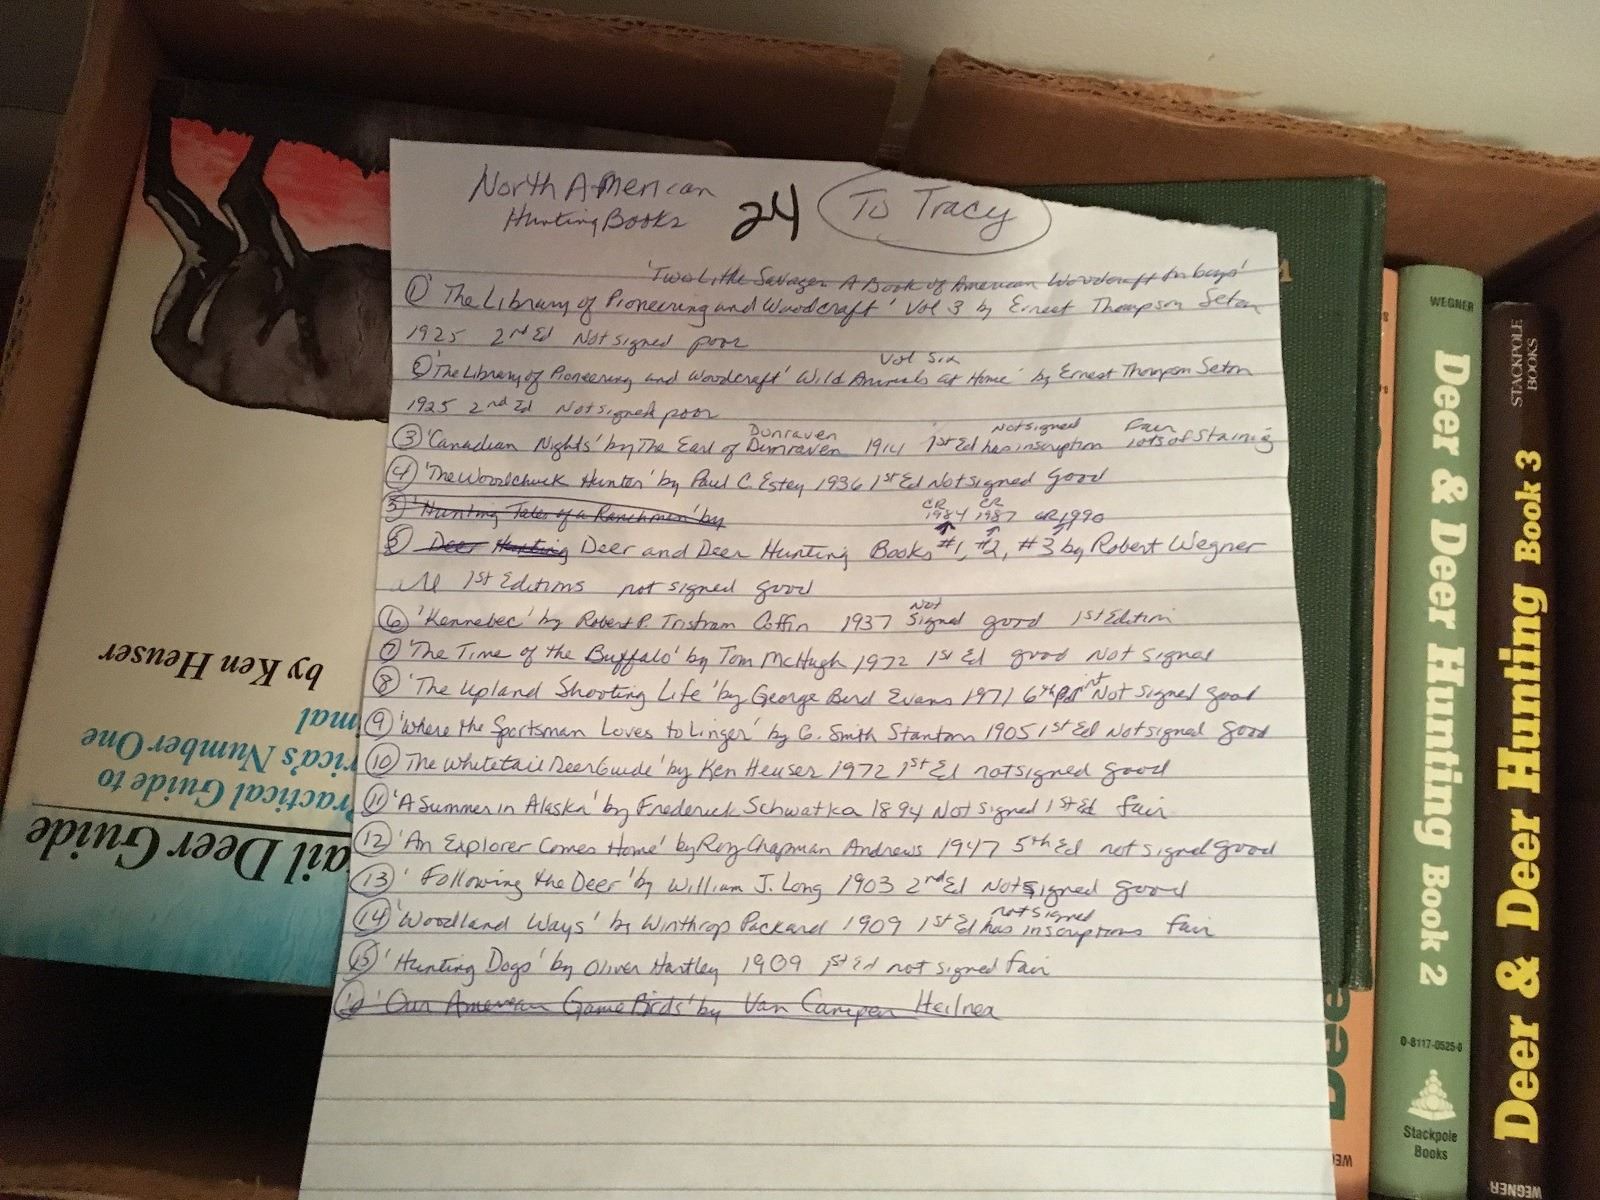 North American
Hunting Books
24
To Tracy
'Two Little Savages A Book of American Woodcraft for boys'
① 'The Library of Pioneering and Woodcraft' Vol 3 by Ernest Thompson Seton
1925 2nd Ed Not signed poor
Vol Six
② 'The Library of Pioneering and Woodcraft' 'Wild Animals at Home' by Ernest Thompson Seton
1925 2nd Ed Not signed poor
Dunraven Not signed Fair
③ 'Canadian Nights' by The Earl of Dunraven 1914 1st Ed has inscription lots of staining
④ 'The Woodchuck Hunter' by Paul C. Estey 1936 1st Ed Not signed Good
5 'Hunting Tales of a Ranchman' by
CR 1984 CR 1987 CR 1990
⑤ Deer Hunting Deer and Deer Hunting Books #1, #2, #3 by Robert Wegner
All 1st Editions not signed good
Not
⑥ 'Kennebec' by Robert P. Tristram Coffin 1937 Signed good 1st Edition
⑦ 'The Time of the Buffalo' by Tom McHugh 1972 1st Ed good Not Signed
⑧ 'The Upland Shooting Life' by George Bird Evans 1971 6th Print Not Signed Good
⑨ 'Where the Sportsman Loves to Linger' by G. Smith Stanton 1905 1st Ed Not signed Good
⑩ 'The Whitetail Deer Guide' by Ken Heuser 1972 1st Ed not signed Good
⑪ 'A Summer in Alaska' by Frederick Schwatka 1894 Not Signed 1st Ed fair
⑫ 'An Explorer Comes Home' by Roy Chapman Andrews 1947 5th Ed not signed Good
⑬ 'Following the Deer' by William J. Long 1903 2nd Ed Not signed Good
not signed
⑭ 'Woodland Ways' by Winthrop Packard 1909 1st Ed has inscriptions fair
⑮ 'Hunting Dogs' by Oliver Hartley 1909 1st Ed not signed fair
⑯ 'Our American Game Birds' by Van Campen Heilner
ail Deer Guide
Practical Guide to
rica's Number One
mal
by Ken Heuser
Dee
WEGNER
Deer & Deer Hunting Book 2
0-8117-0525-0
Stackpole
Books
STACKPOLE
BOOKS
Deer & Deer Hunting Book 3
WEGNER